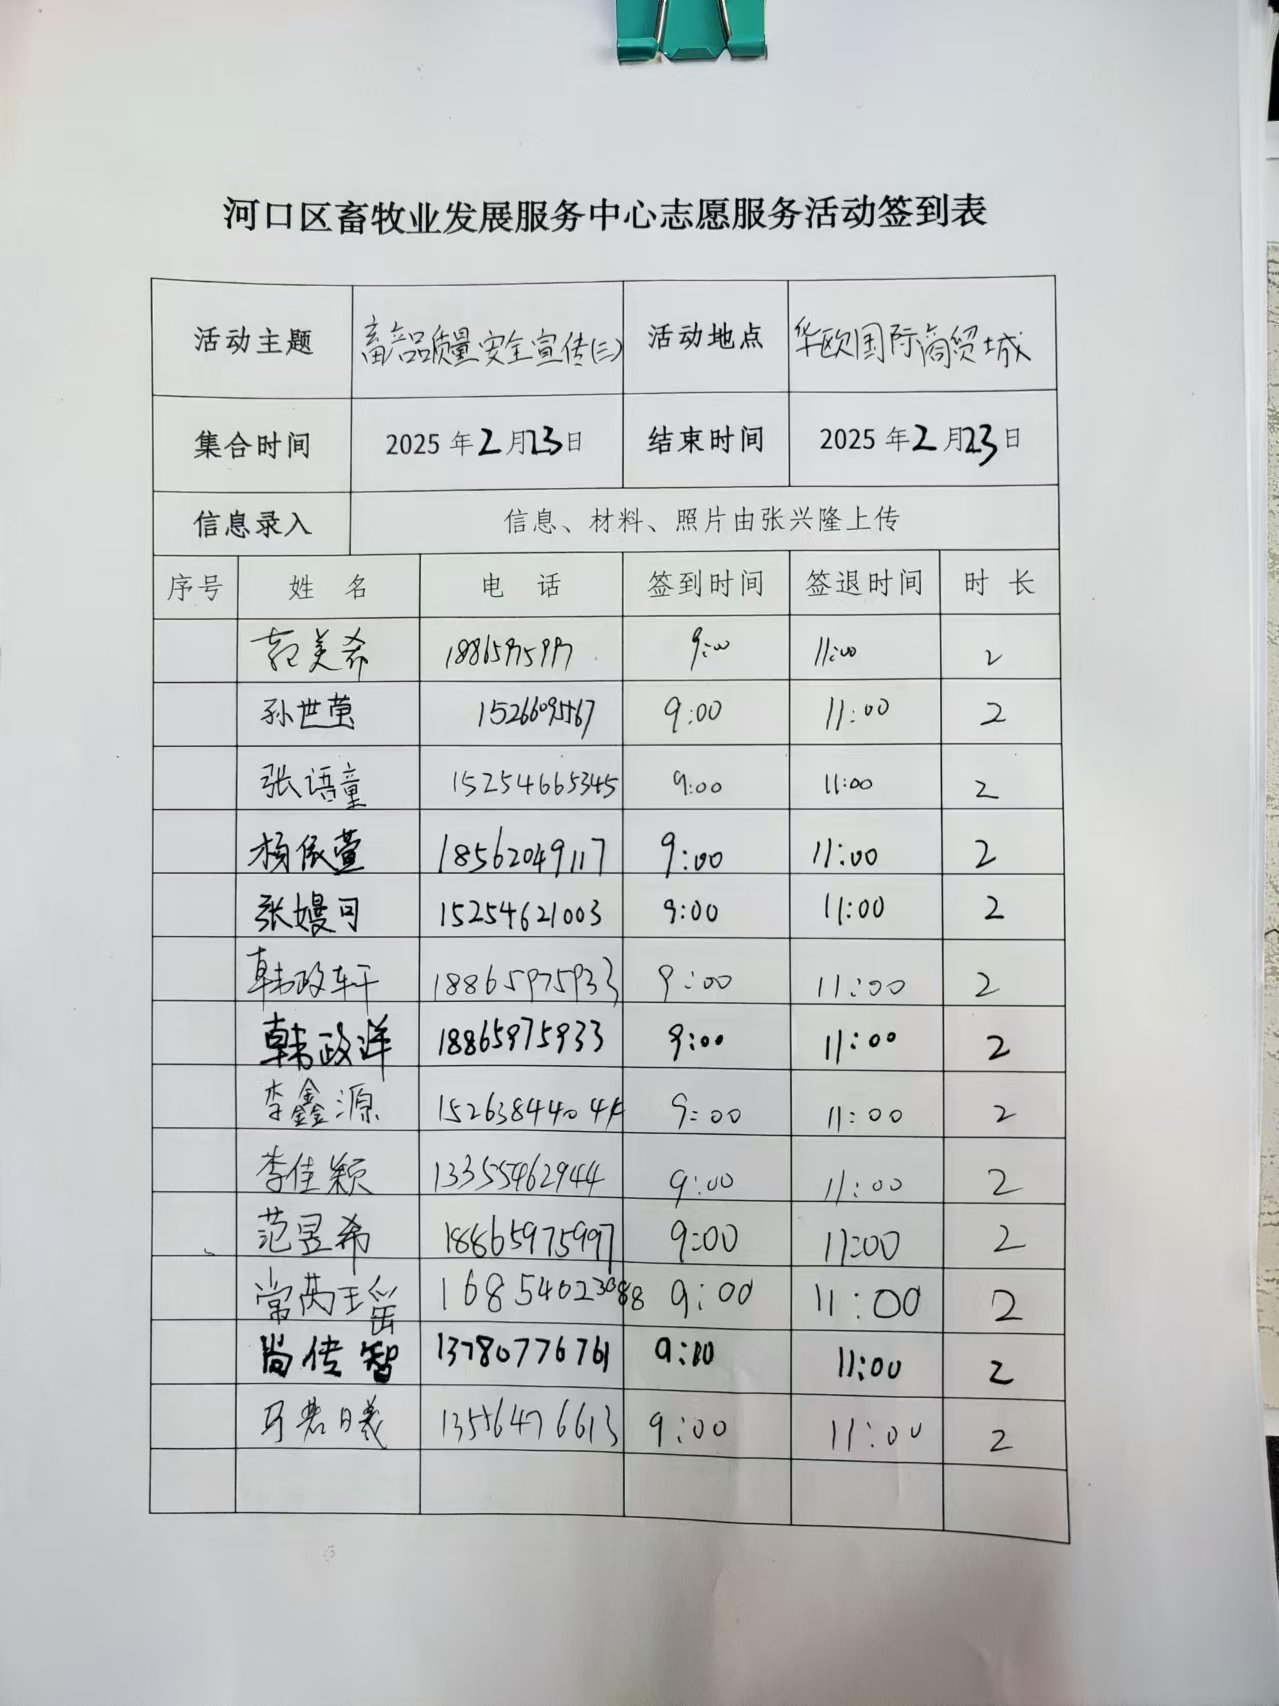 河口区畜牧业发展服务中心志愿服务活动签到表
活动主题 畜产品质量安全宣传(三) 活动地点 华欧国际商贸城
集合时间 2025年2月23日 结束时间 2025年2月23日
信息录入 信息、材料、照片由张兴隆上传
序号 姓 名 电 话 签到时间 签退时间 时 长
美希 9:00 11:00 2
孙世萤 15266095567 9:00 11:00 2
张语童 15254665345 9:00 11:00 2
杨依萱 18562049117 9:00 11:00 2
张嫚可 15254621003 9:00 11:00 2
韩政轩 18865975933 9:00 11:00 2
韩政洋 18865975933 9:00 11:00 2
李鑫源 9:00 11:00 2
李佳颖 13355462944 9:00 11:00 2
范昱希 18865975997 9:00 11:00 2
常 瑶 9:00 11:00 2
尚传智 13780776761 11:00 2
曦 13556476613 9:00 11:00 2